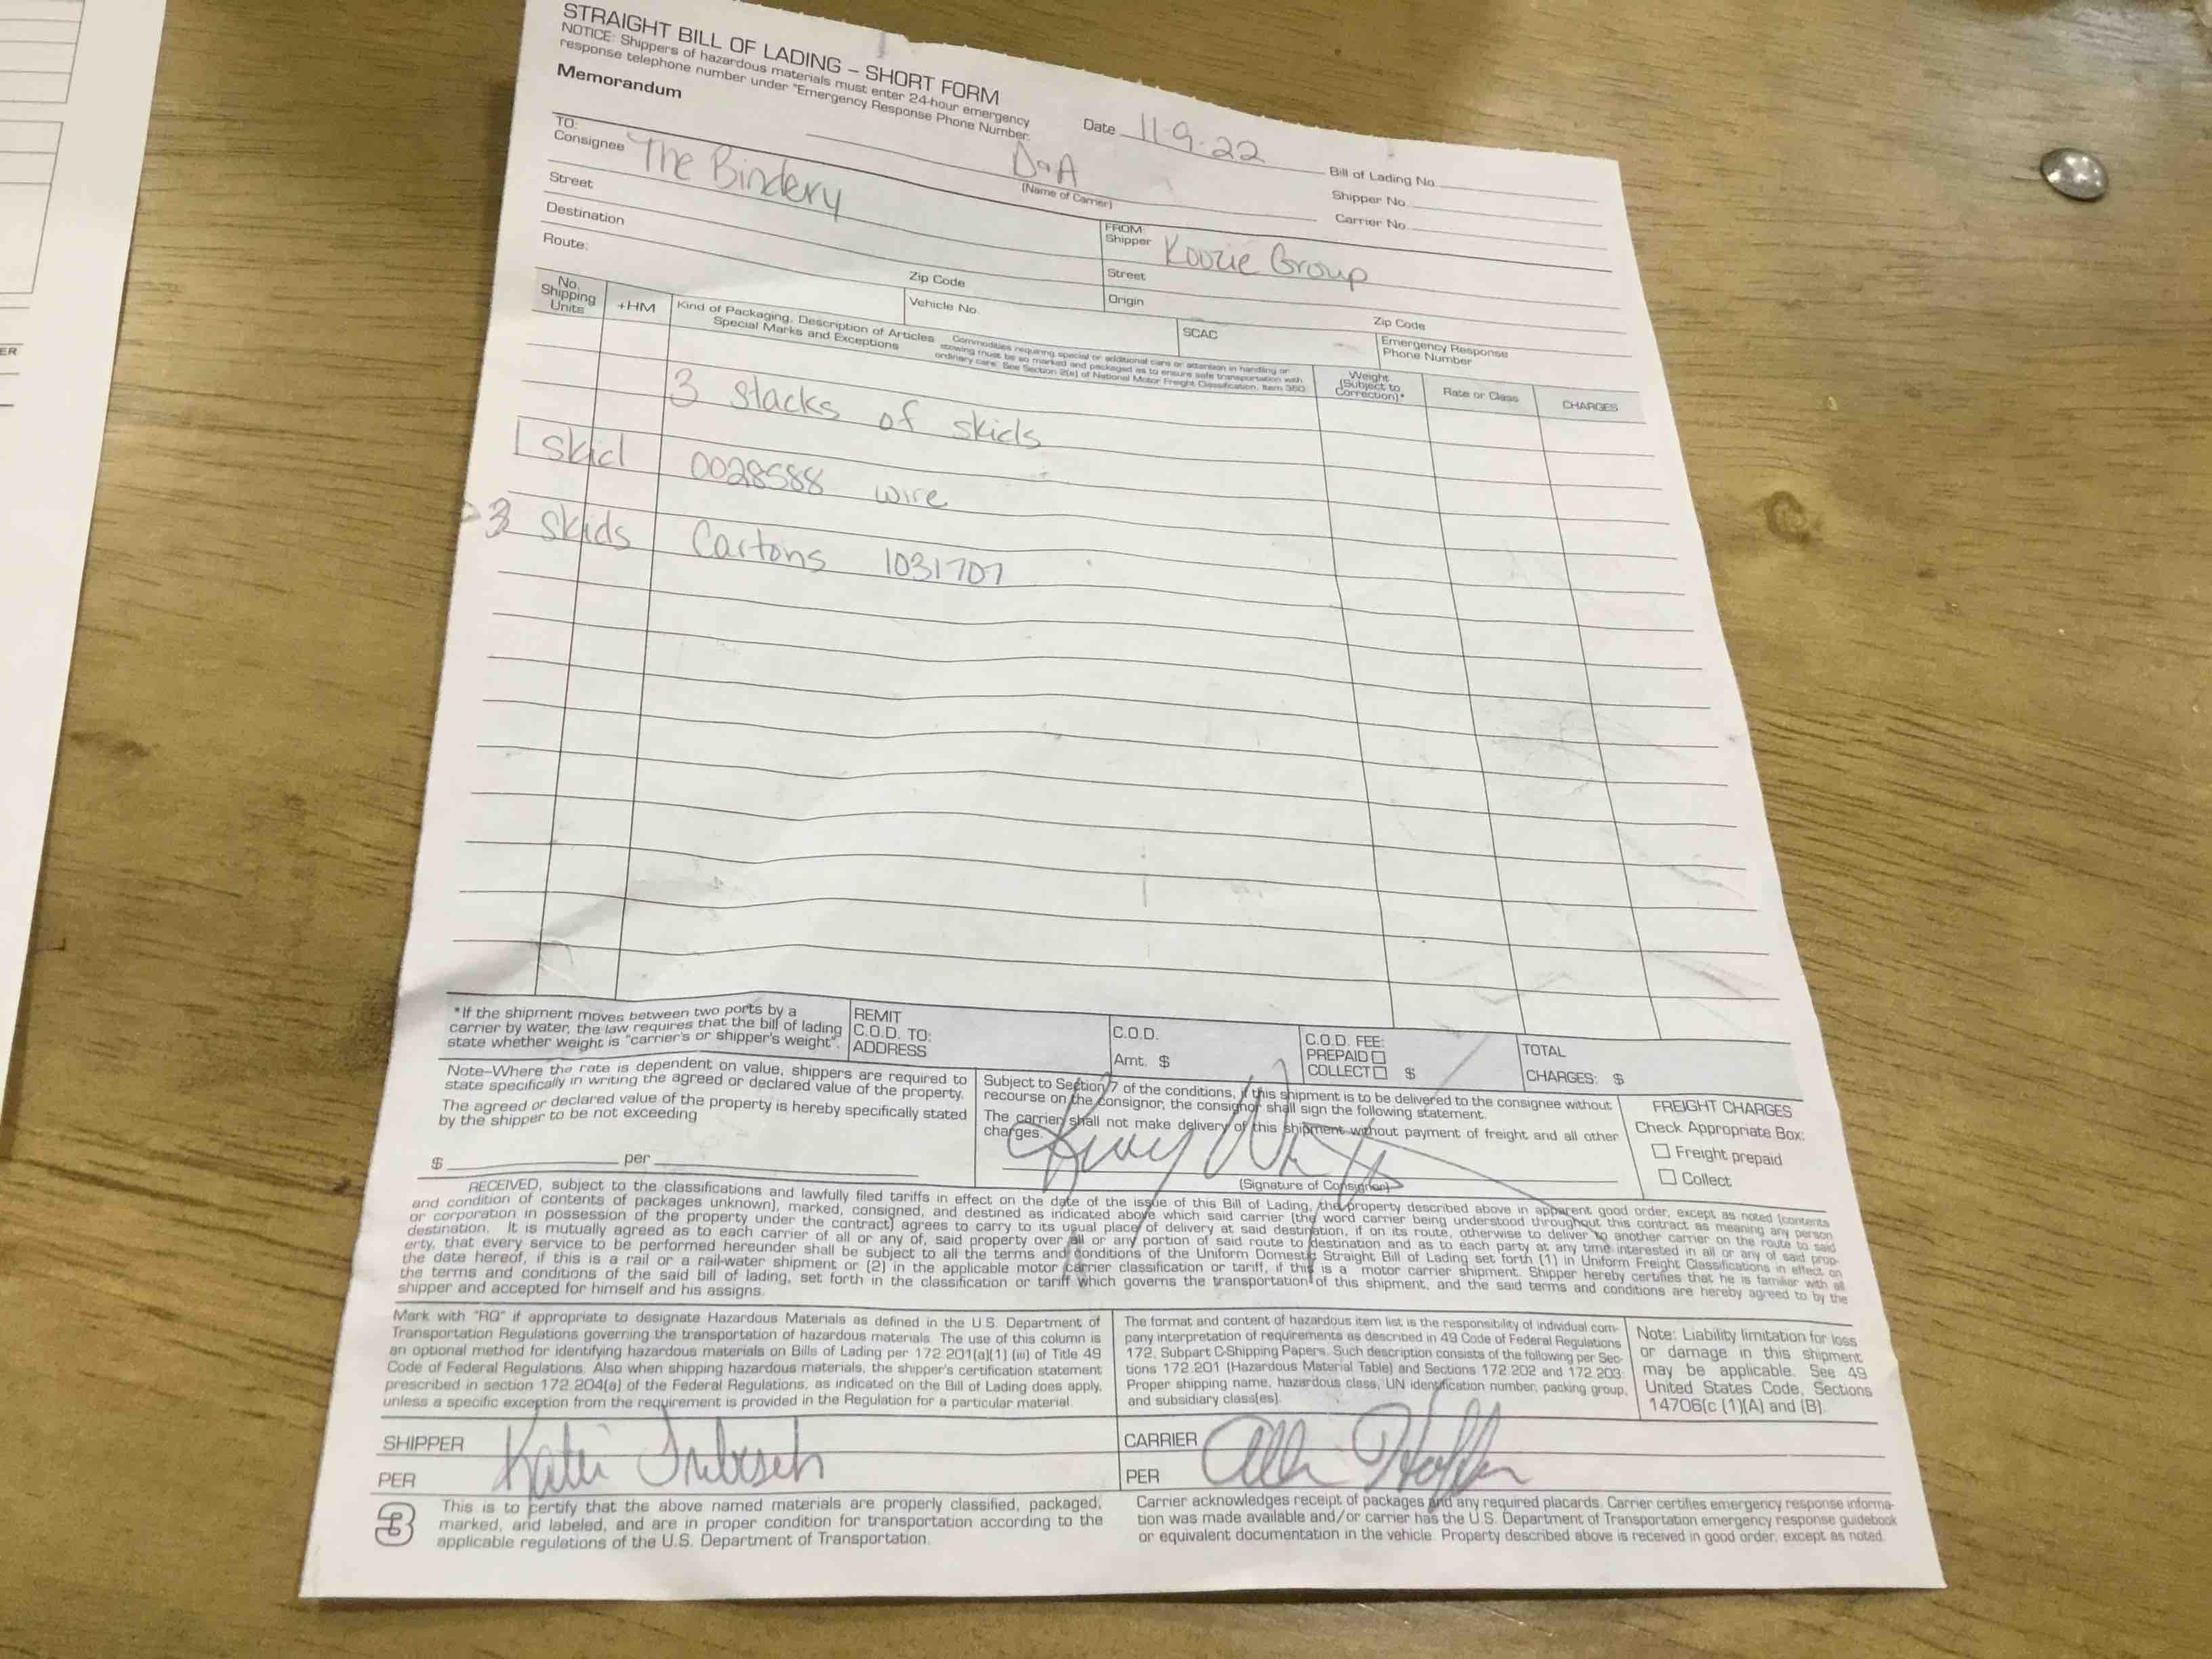 STRAIGHT BILL OF LADING – SHORT FORM
NOTICE: Shippers of hazardous materials must enter 24-hour emergency
response telephone number under "Emergency Response Phone Number.
Memorandum
Date 11-9-22
Bill of Lading No.
Shipper No.
Carrier No.
D&A
(Name of Carrier)
TO:
Consignee The Bindery
Street
Destination
Zip Code
Route:
Vehicle No.
FROM:
Shipper Koozie Group
Street
Origin
Zip Code
SCAC
Emergency Response
Phone Number
No.
Shipping
Units
+HM
Kind of Packaging, Description of Articles
Special Marks and Exceptions
Commodities requiring special or additional care or attention in handling or
stowing must be so marked and packaged as to ensure safe transportation with
ordinary care. See Section 2(e) of National Motor Freight Classification, Item 360
Weight
(Subject to
Correction)*
Rate or Class
CHARGES
3 stacks of skids
1 skid 0028588 wire
3 skids Cartons 1031707
*If the shipment moves between two ports by a
carrier by water, the law requires that the bill of lading
state whether weight is "carrier's or shipper's weight".
REMIT
C.O.D. TO:
ADDRESS
C.O.D.
Amt. $
C.O.D. FEE:
PREPAID
COLLECT $
TOTAL
CHARGES: $
Note–Where the rate is dependent on value, shippers are required to
state specifically in writing the agreed or declared value of the property.
The agreed or declared value of the property is hereby specifically stated
by the shipper to be not exceeding
$ per
Subject to Section 7 of the conditions, if this shipment is to be delivered to the consignee without
recourse on the consignor, the consignor shall sign the following statement.
The carrier shall not make delivery of this shipment without payment of freight and all other
charges.
(Signature of Consignor)
FREIGHT CHARGES
Check Appropriate Box:
Freight prepaid
Collect
RECEIVED, subject to the classifications and lawfully filed tariffs in effect on the date of the issue of this Bill of Lading, the property described above in apparent good order, except as noted (contents
and condition of contents of packages unknown), marked, consigned, and destined as indicated above which said carrier (the word carrier being understood throughout this contract as meaning any person
or corporation in possession of the property under the contract) agrees to carry to its usual place of delivery at said destination, if on its route, otherwise to deliver to another carrier on the route to said
destination. It is mutually agreed as to each carrier of all or any of, said property over all or any portion of said route to destination and as to each party at any time interested in all or any of said prop-
erty, that every service to be performed hereunder shall be subject to all the terms and conditions of the Uniform Domestic Straight Bill of Lading set forth (1) in Uniform Freight Classifications in effect on
the date hereof, if this is a rail or a rail-water shipment or (2) in the applicable motor carrier classification or tariff, if this is a motor carrier shipment. Shipper hereby certifies that he is familiar with all
the terms and conditions of the said bill of lading, set forth in the classification or tariff which governs the transportation of this shipment, and the said terms and conditions are hereby agreed to by the
shipper and accepted for himself and his assigns.
Mark with "RQ" if appropriate to designate Hazardous Materials as defined in the U.S. Department of
Transportation Regulations governing the transportation of hazardous materials. The use of this column is
an optional method for identifying hazardous materials on Bills of Lading per 172.201(a)(1) (iii) of Title 49
Code of Federal Regulations. Also when shipping hazardous materials, the shipper's certification statement
prescribed in section 172.204(a) of the Federal Regulations, as indicated on the Bill of Lading does apply,
unless a specific exception from the requirement is provided in the Regulation for a particular material.
The format and content of hazardous item list is the responsibility of individual com-
pany interpretation of requirements as described in 49 Code of Federal Regulations
172, Subpart C-Shipping Papers. Such description consists of the following per Sec-
tions 172.201 (Hazardous Material Table) and Sections 172.202 and 172.203:
Proper shipping name, hazardous class, UN identification number, packing group,
and subsidiary class(es).
Note: Liability limitation for loss
or damage in this shipment
may be applicable. See 49
United States Code, Sections
14706(c (1)(A) and (B).
SHIPPER
PER
Katie
CARRIER
PER
3
This is to certify that the above named materials are properly classified, packaged,
marked, and labeled, and are in proper condition for transportation according to the
applicable regulations of the U.S. Department of Transportation.
Carrier acknowledges receipt of packages and any required placards. Carrier certifies emergency response informa-
tion was made available and/or carrier has the U.S. Department of Transportation emergency response guidebook
or equivalent documentation in the vehicle. Property described above is received in good order, except as noted.